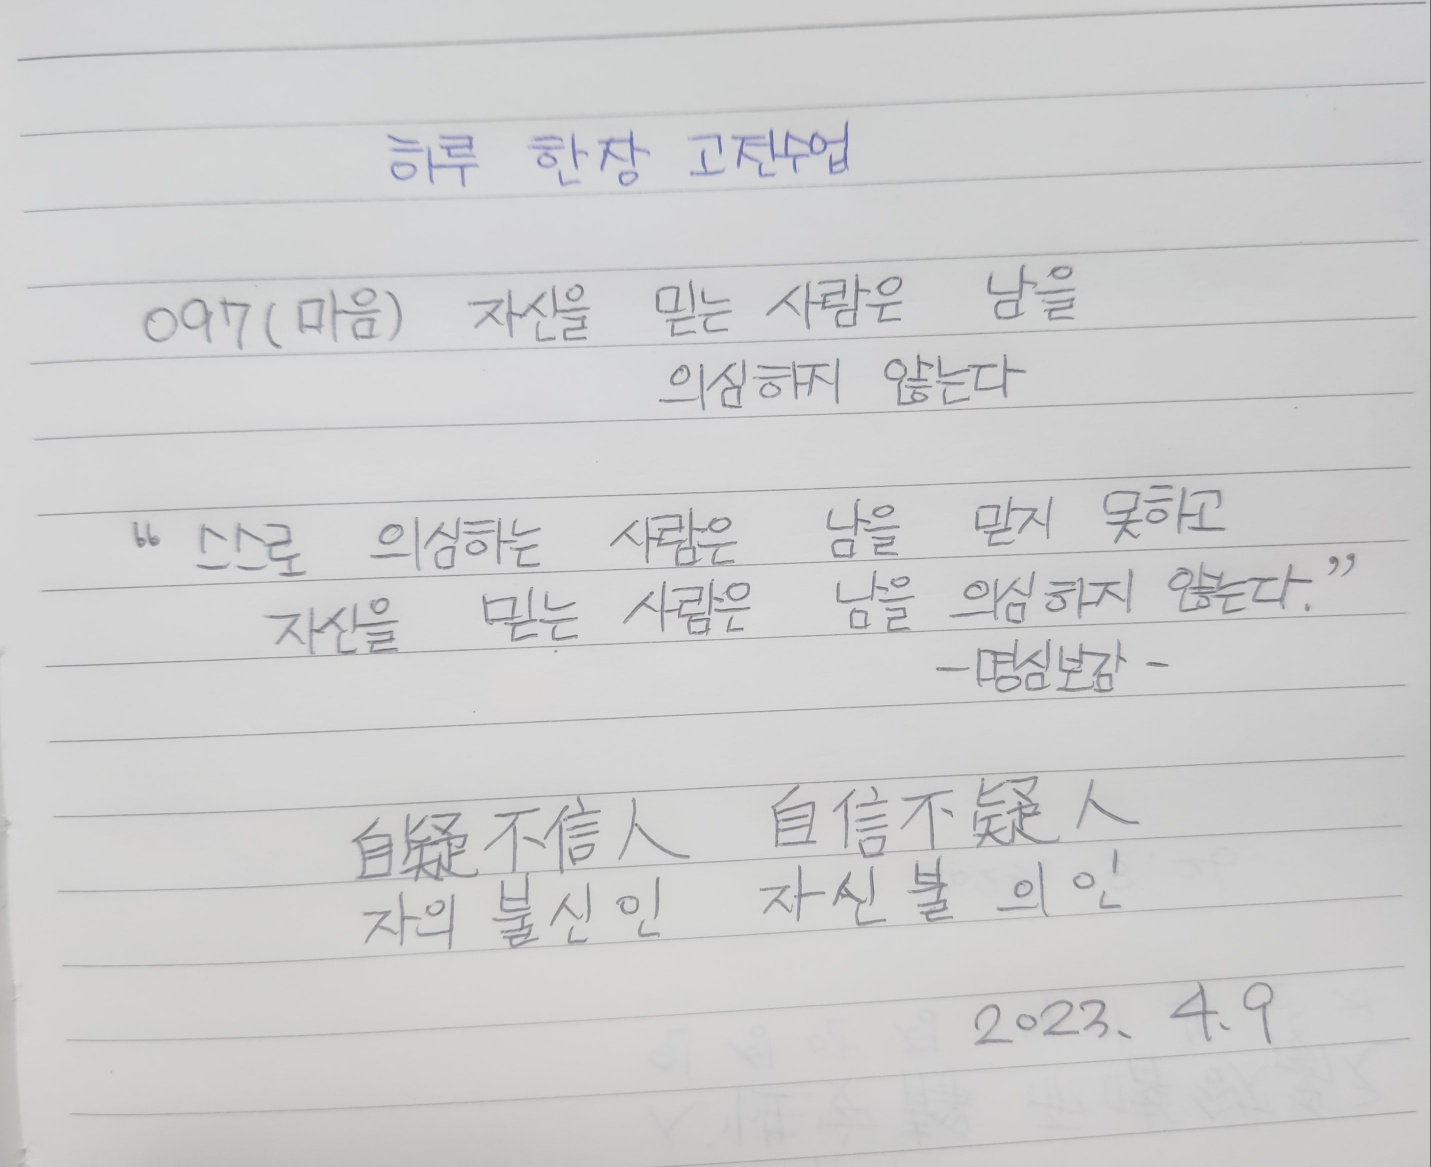 하루 한장 고전수업
097(마음) 자신을 믿는 사람은 남을
의심하지 않는다
“스스로 의심하는 사람은 남을 믿지 못하고
자신을 믿는 사람은 남을 의심하지 않는다.”
-명심보감-
自疑不信人 自信不疑人
자의 불신인 자신불 의인
2023. 4.9